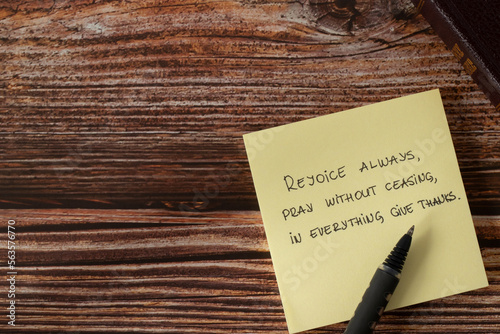 Rejoice always,
pray without ceasing,
in everything give thanks.
Adobe Stock | #563576770